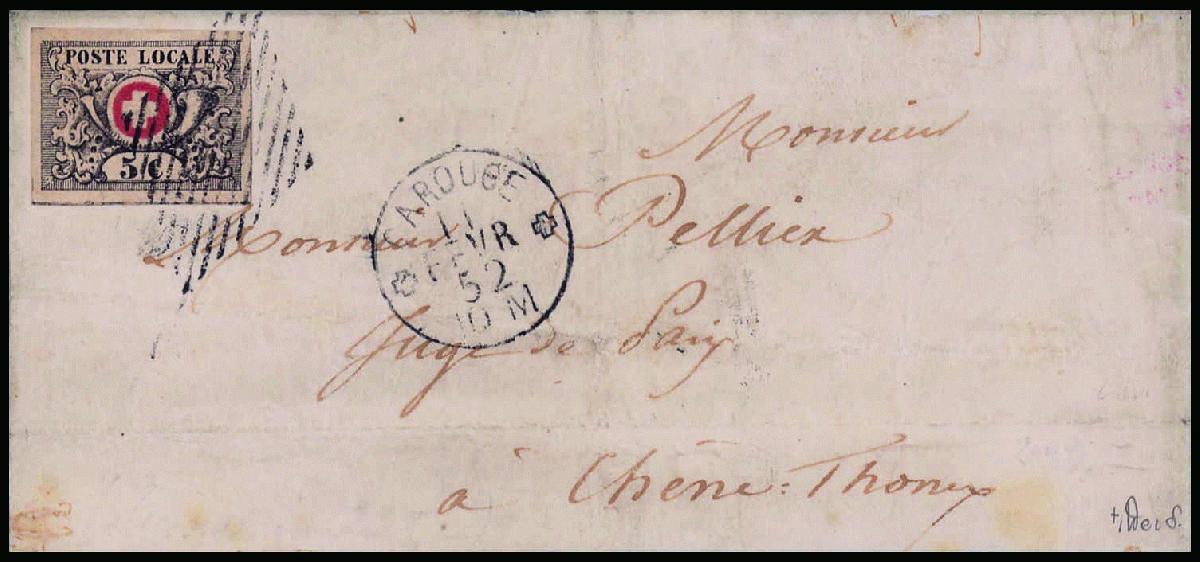 POSTE LOCALE
5 c
CAROUGE
11
FEVR
52
10 M
Monsieur
Monsieur Pellier
Juge de Paix
à Chêne=Thonex